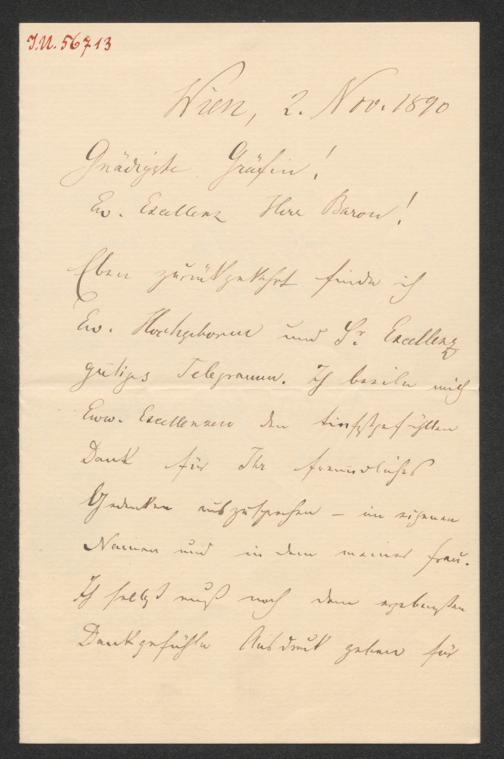 I.N. 56713
Wien, 2. Nov. 1890
Gnädigste Gräfin!
Ew. Excellenz Herr Baron!
Eben zurückgekehrt finde ich
Ew. Hochgeboren und Sr. Excellenz
gütiges Telegramm. Ich beeile mich
Eww. Excellenzen den tiefstgefühlten
Dank für Ihr freundliches
Gedenken auszusprechen – im eigenen
Namen und in dem meiner Frau.
Ich selbst muß noch dem ergebensten
Dankgefühle Ausdruck geben für